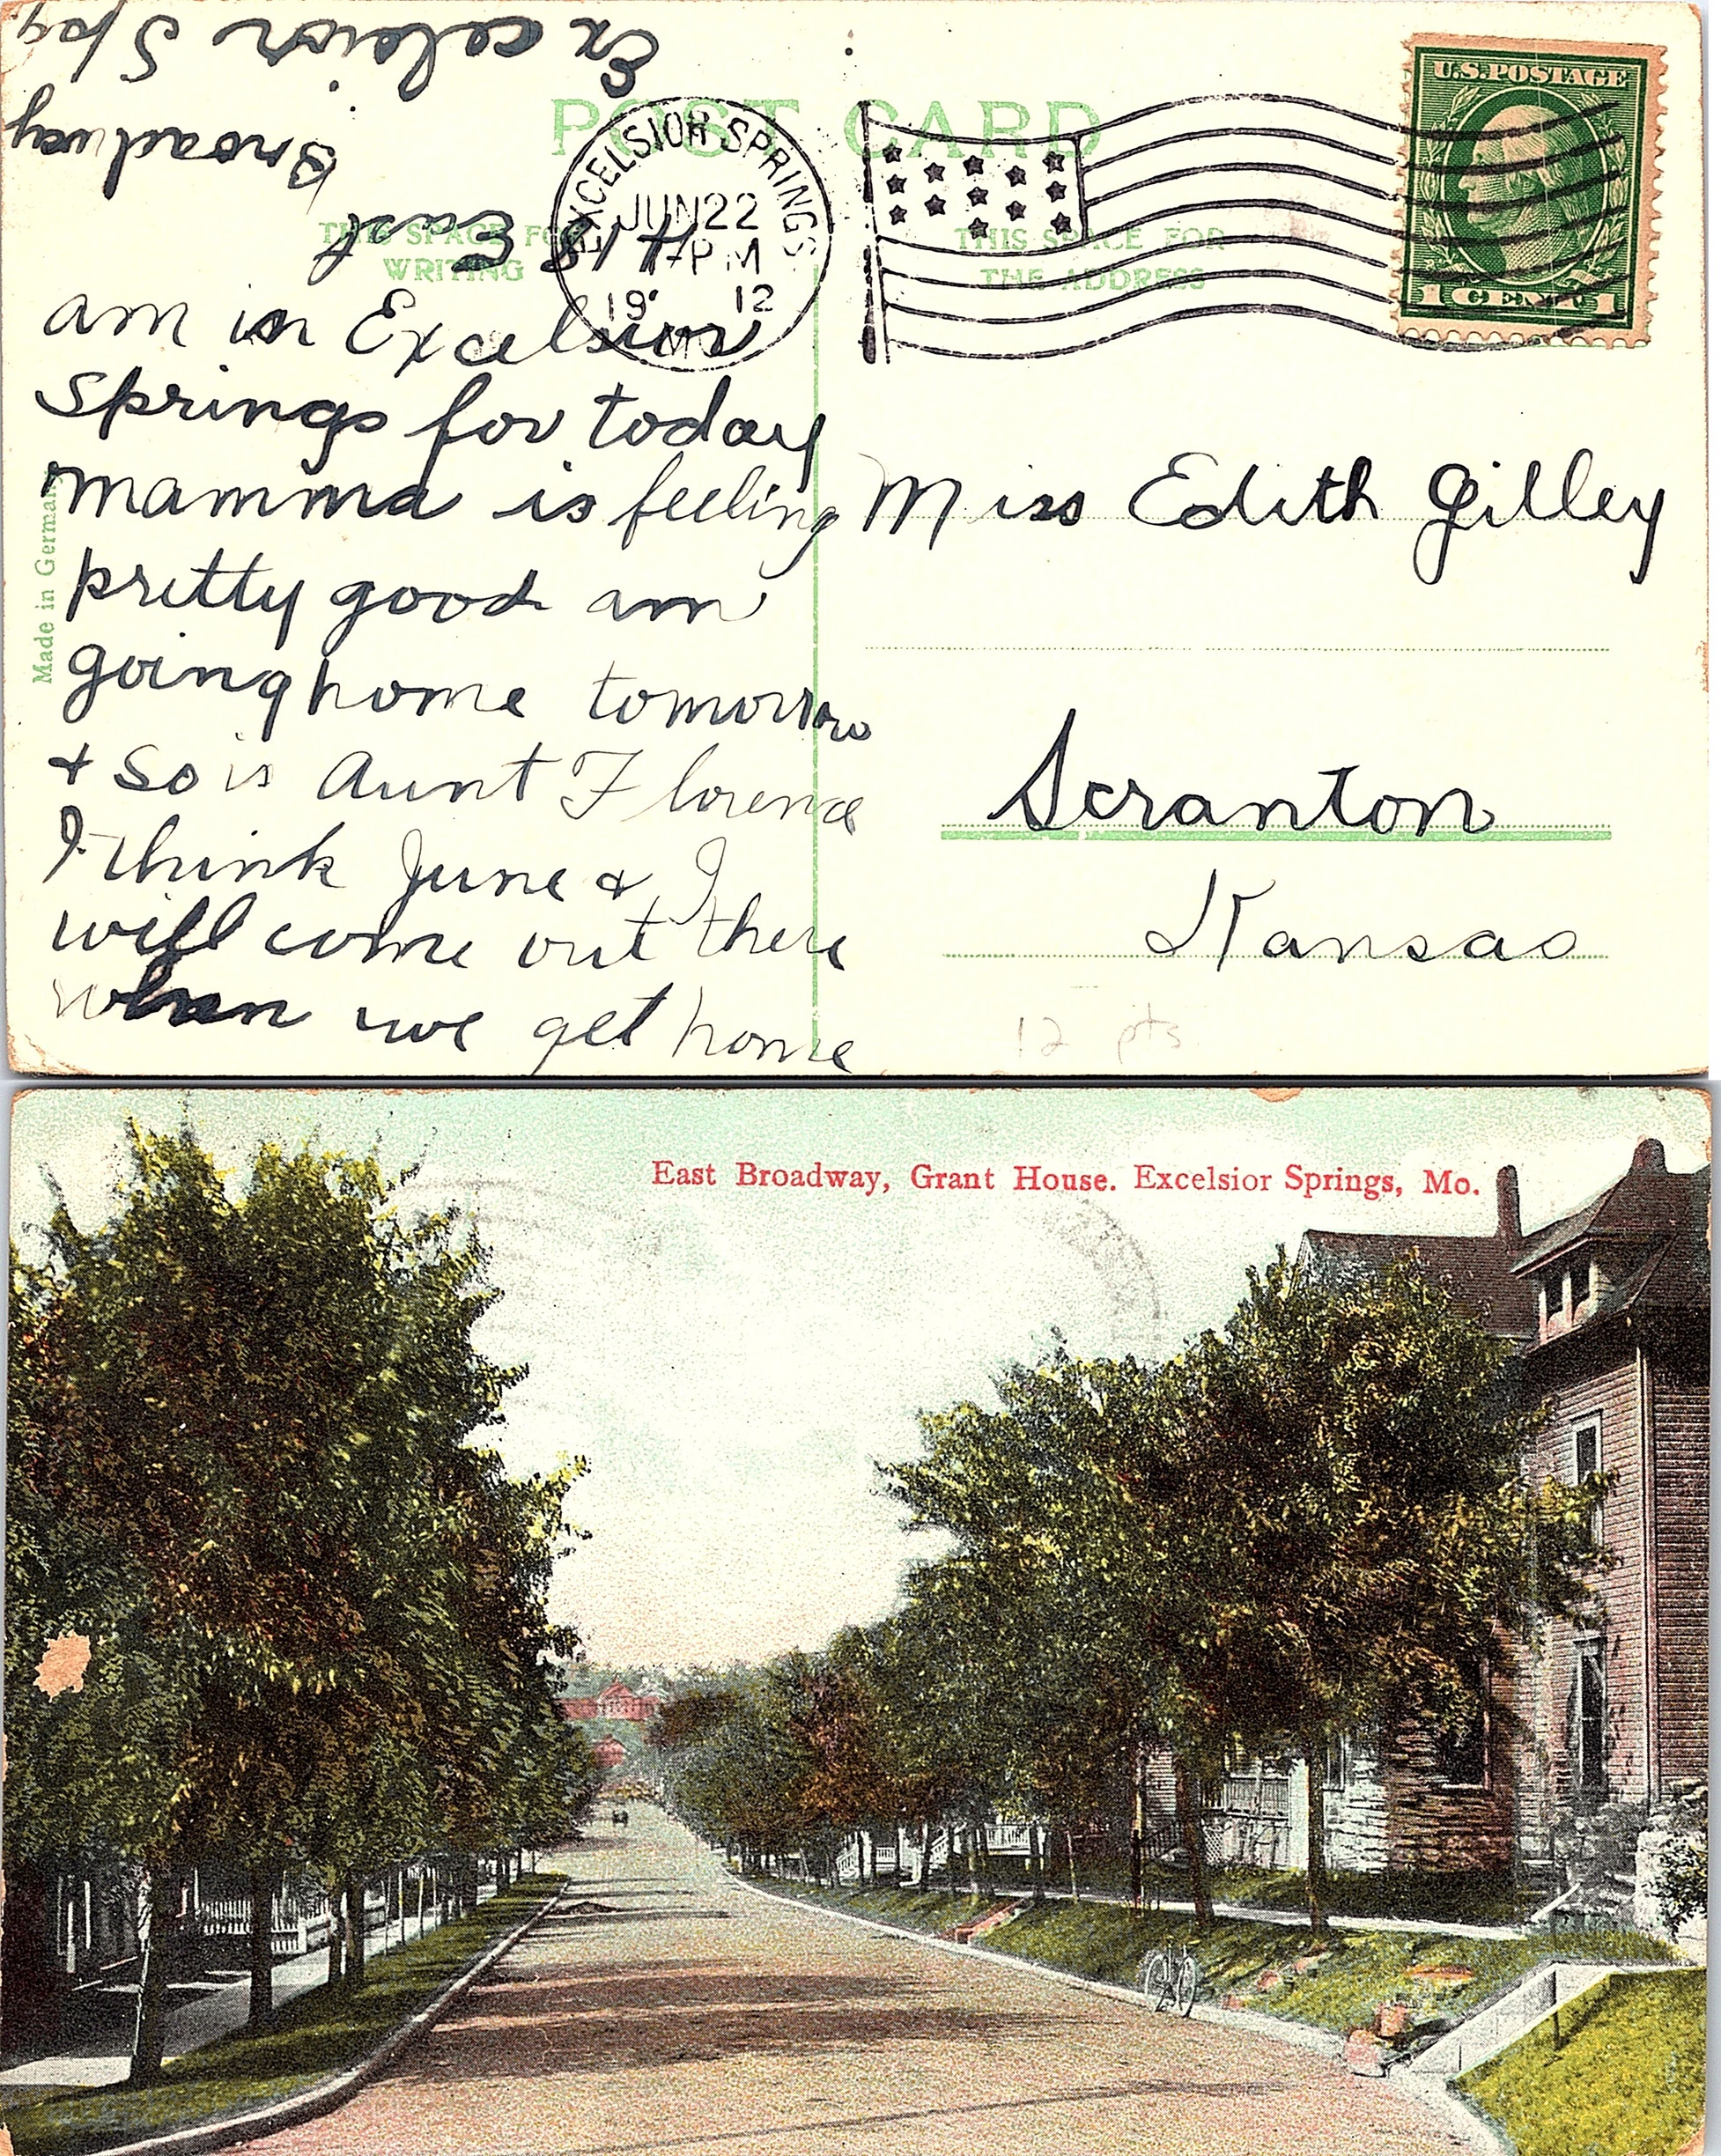 POST CARD
THIS SPACE FOR
WRITING
THIS SPACE FOR
THE ADDRESS
EXCELSIOR SPRINGS
JUN 22
7-PM
19' 12
MO.
U.S. POSTAGE
1 CENT 1
418 East
Broadway
Excelsior Spgs.
am in Excelsior
Springs for today
mamma is feeling
pretty good am
going home tomorrow
& So is Aunt Florence
I think June & I
will come out there
when we get home
Made in Germany
Miss Edith Gilley
Scranton
Kansas
12 pts
East Broadway, Grant House. Excelsior Springs, Mo.